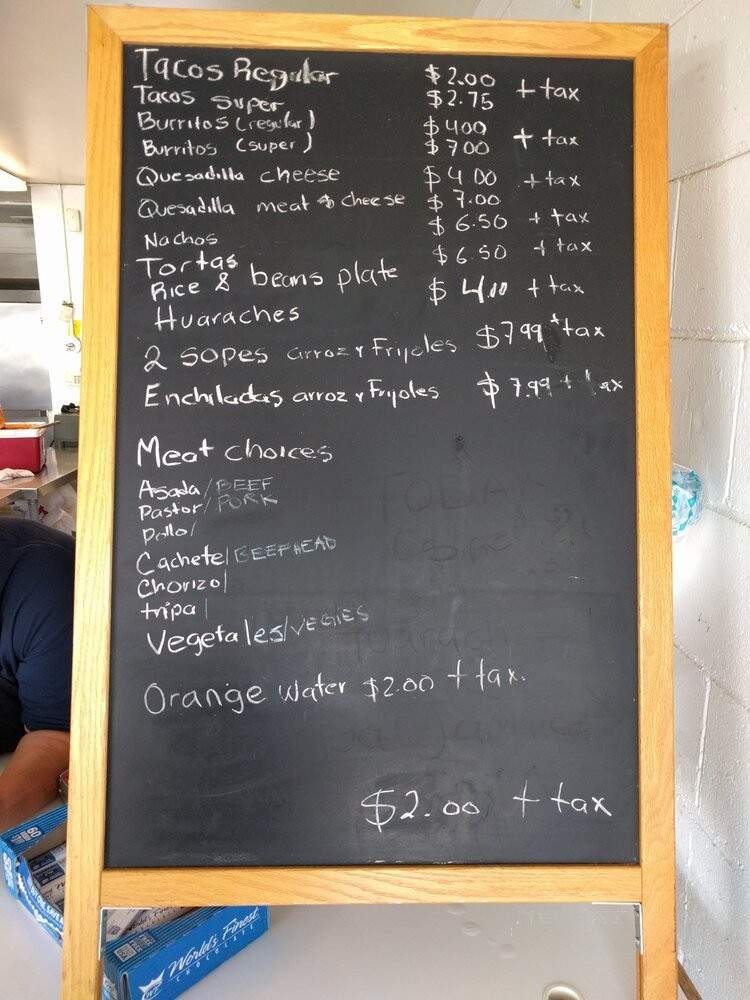 Tacos Regular $2.00 + tax
Tacos super $2.75
Burritos (regular) $400 + tax
Burritos (super) $700
Quesadilla cheese $4.00 + tax
Quesadilla meat & cheese $7.00
Nachos $6.50 + tax
Tortas $6.50 + tax
Rice & beans plate $4.00 + tax
Huaraches
2 sopes arroz y Frijoles $799 + tax
Enchiladas arroz y Frijoles $7.99 + tax
Meat choices
Asada/BEEF
Pastor/PORK
Pollo/
Cachete/BEEFHEAD
Chorizo/
tripa/
Vegetales/VEGIES
Orange water $2.00 + tax.
$2.00 + tax
World's Finest
CHOCOLATE
60